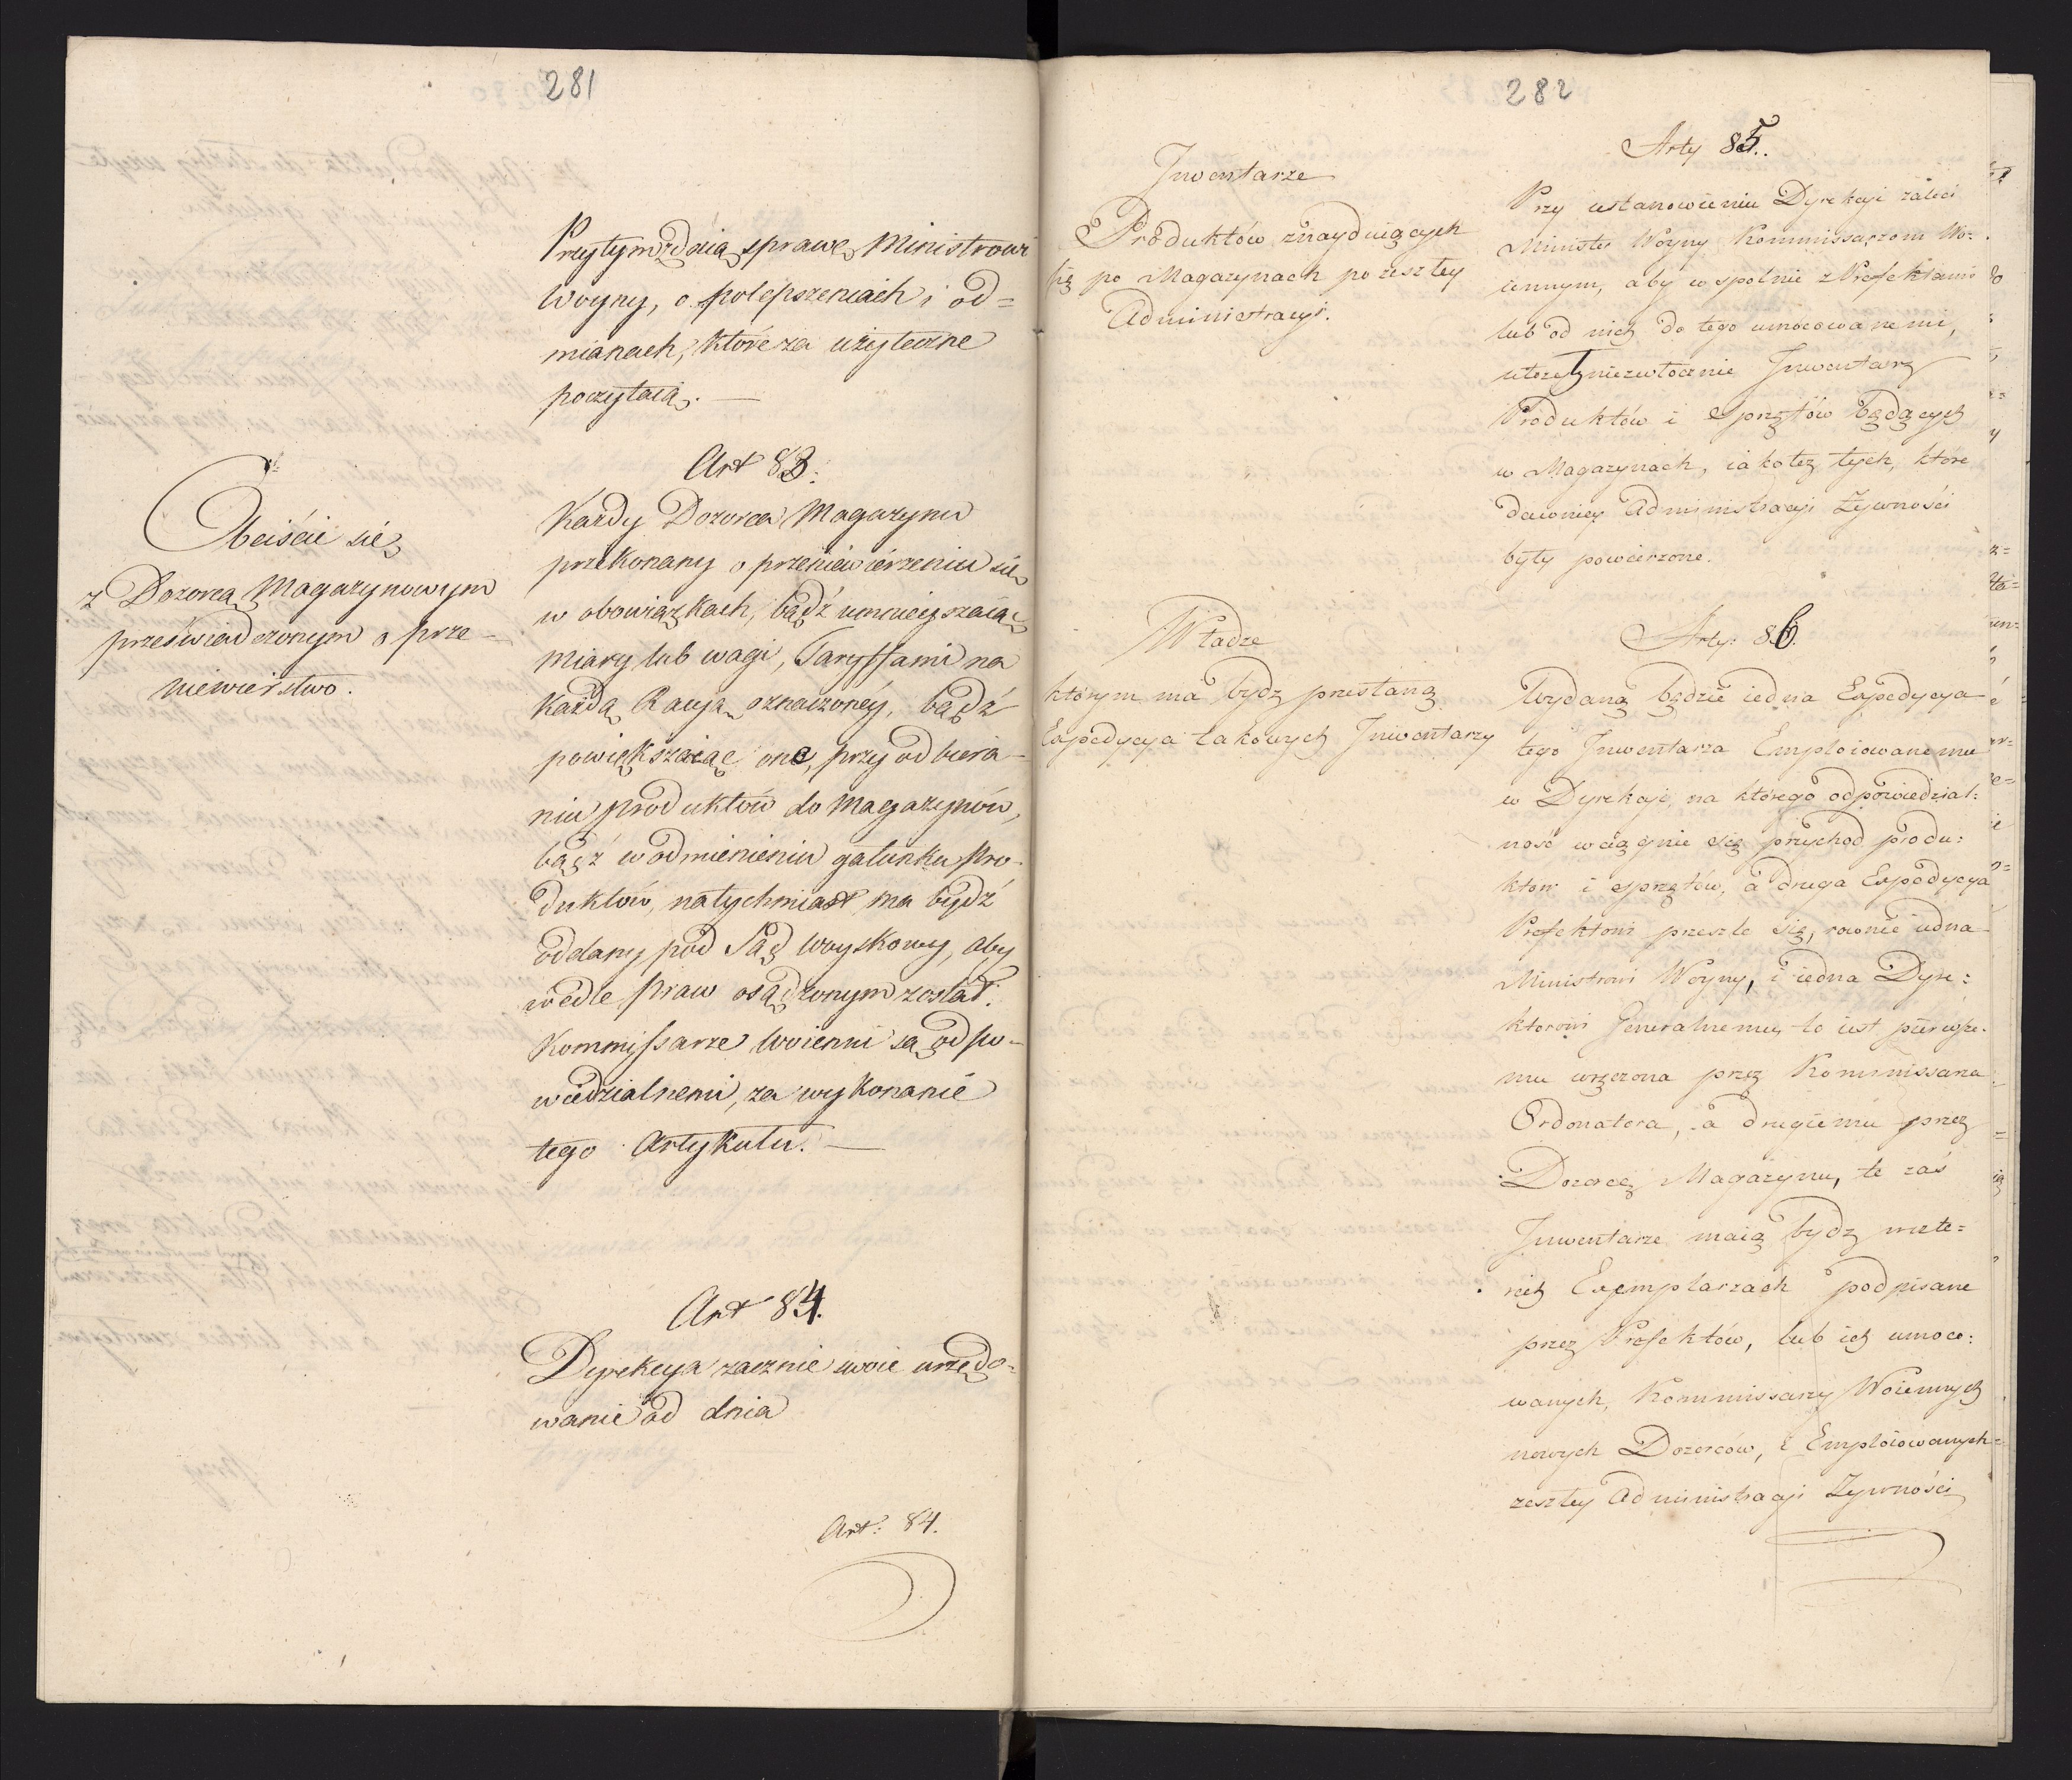 281
Przytym zdaią sprawę Ministrowi
Woyny, o polepszeniach i od=
mianach, które za użyteczne
poczytaią. —
Art 83.
Obeiście się
z Dozorcą Magazynowym
przeświadczonym o prze-
niewierstwo.
Każdy Dozorca Magazynu
przekonany o przeniewierzeniu się
w obowiązkach, bądź umnieyszaiąc
miary lub wagi, Taryffami na
każdą Racyą oznaczoney, bądź
powiększaiąc one, przy odbiera-
niu produktów do Magazynów,
bądź w odmienieniu gatunku pro-
duktów, natychmiast ma bydź
oddany pod Sąd woyskowy, aby
wedle praw osądzonym został.
Kommissarze woienni są odpo-
wiedzialnemi, za wykonanie
tego Artykułu. —
Art 84.
Dyrekcya zacznie swoie urzędo-
wanie od dnia
Art: 84.
282
Arty 85.
Inwentarze
Produktów znayduiących
się po Magazynach po zeszłey
Administracyi.
Przy ustanowieniu Dyrekcyi zaleci
Minister Woyny Kommissarzom Wo-
iennym, aby wspolnie z Prefektami
lub od nich do tego umocowanemi,
ułożyli niezwłocznie Inwentarz
Produktów i sprzętów będących
w Magazynach, iakoteż tych, które
dawniey Administracyi Żywności
były powierzone.
Arty: 86.
Władze
którym ma bydz przesłaną
Expedycya takowych Inwentarzy
Wydaną będzie iedna Expedycya
tego Inwentarza Emploiowanemu
w Dyrekcyi, na którego odpowiedzial=
ność wciągnie się przychod produ=
ktow i sprzętów, a druga Expedycya
Prefektowi prześle się, rownie iedna
Ministrowi Woyny, i iedna Dyre=
ktorowi Generalnemu, to iest pierwsze-
mu wręczona przez Kommissarza
Ordonatora, a drugiemu przez
Dozorcę Magazynu, te zaś
Inwentarze maią bydz na czte=
rech Exemplarzach podpisane
przez Prefektów, lub ich umoco=
wanych, Kommissarzy Woiennych
nowych Dozorców, i Emploiowanych
zeszłey Administracyi Żywności